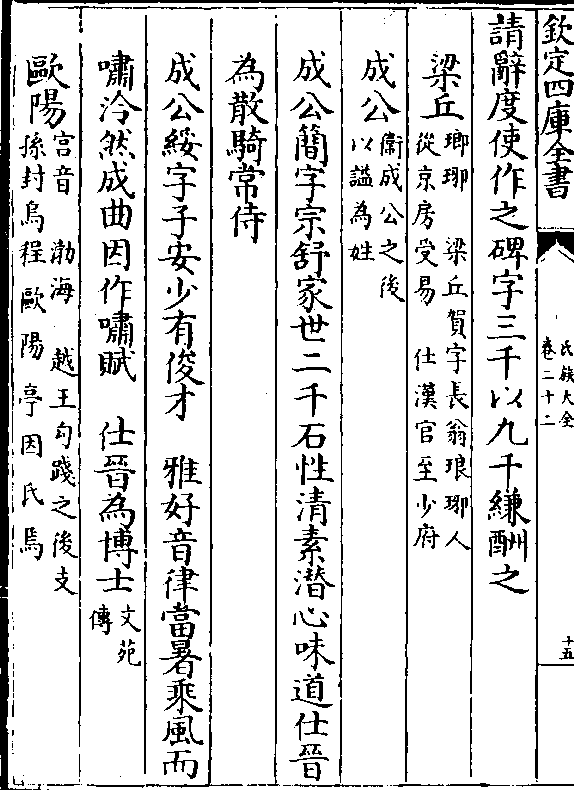 欽定四庫全書
氏族大全
卷二十二
十五
請辭度使作之碑字三千以九千縑酬之
梁丘
瑯琊 梁丘賀字長翁琅琊人
從京房受易 仕漢官至少府
成公
衛成公之後
以諡為姓
成公簡字宗舒家世二千石性清素潛心味道仕晉
為散騎常侍
成公綏字子安少有俊才 雅好音律當暑乘風而
嘯泠然成曲因作嘯賦 仕晉為博士
文苑
傳
歐陽
宫音 渤海 越王勾踐之後支
孫封烏程歐陽亭因氏焉